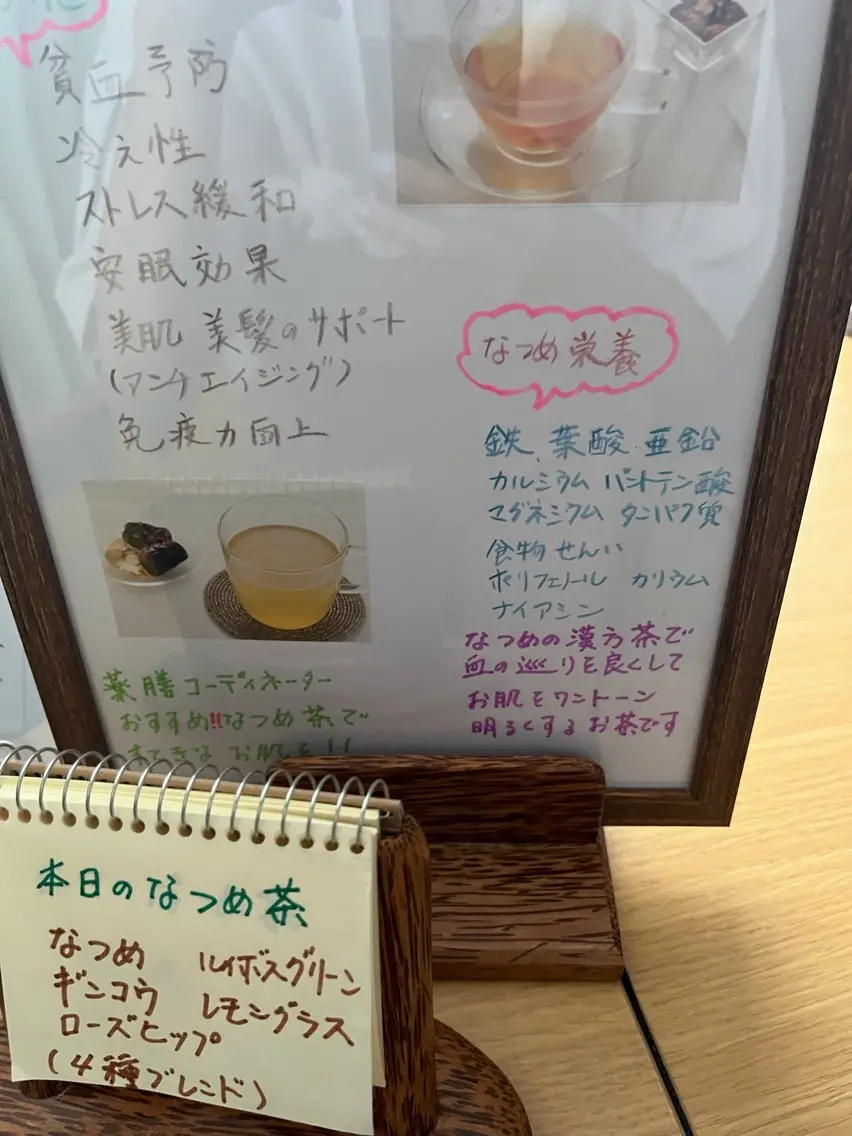 貧血予防
冷え性
ストレス緩和
安眠効果
美肌 美髪のサポート
(アンチエイジング)
免疫力向上
なつめ栄養
鉄、葉酸、亜鉛
カルシウム パントテン酸
マグネシウム タンパク質
食物せんい
ポリフェノール カリウム
ナイアシン
なつめの漢方茶で
血の巡りを良くして
お肌をワントーン
明るくするお茶です
薬膳コーディネーター
おすすめ!!なつめ茶で
すてきな お肌を!!
本日のなつめ茶
なつめ ルイボスグリーン
ギンコウ レモングラス
ローズヒップ
(4種ブレンド)